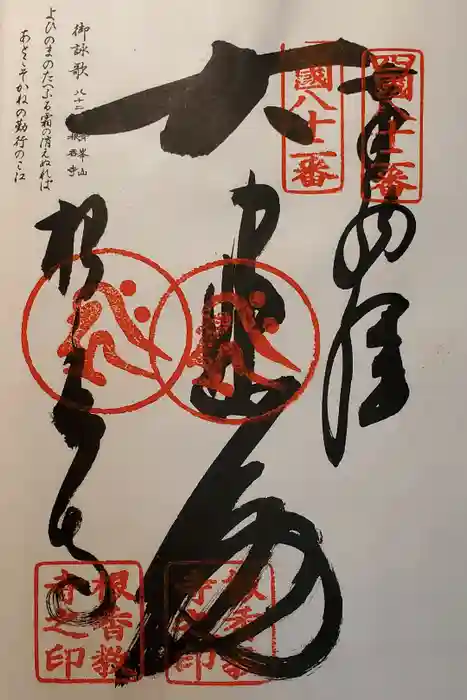 四國八十二番
四國八十二番
奉納経
根香寺
根香教
寺之印
根香教
寺之印
御詠歌 八十二番 青峯山 根香寺
よひのまのたへふる霜の消えぬれば
あとこそかねの勤行のこゑ